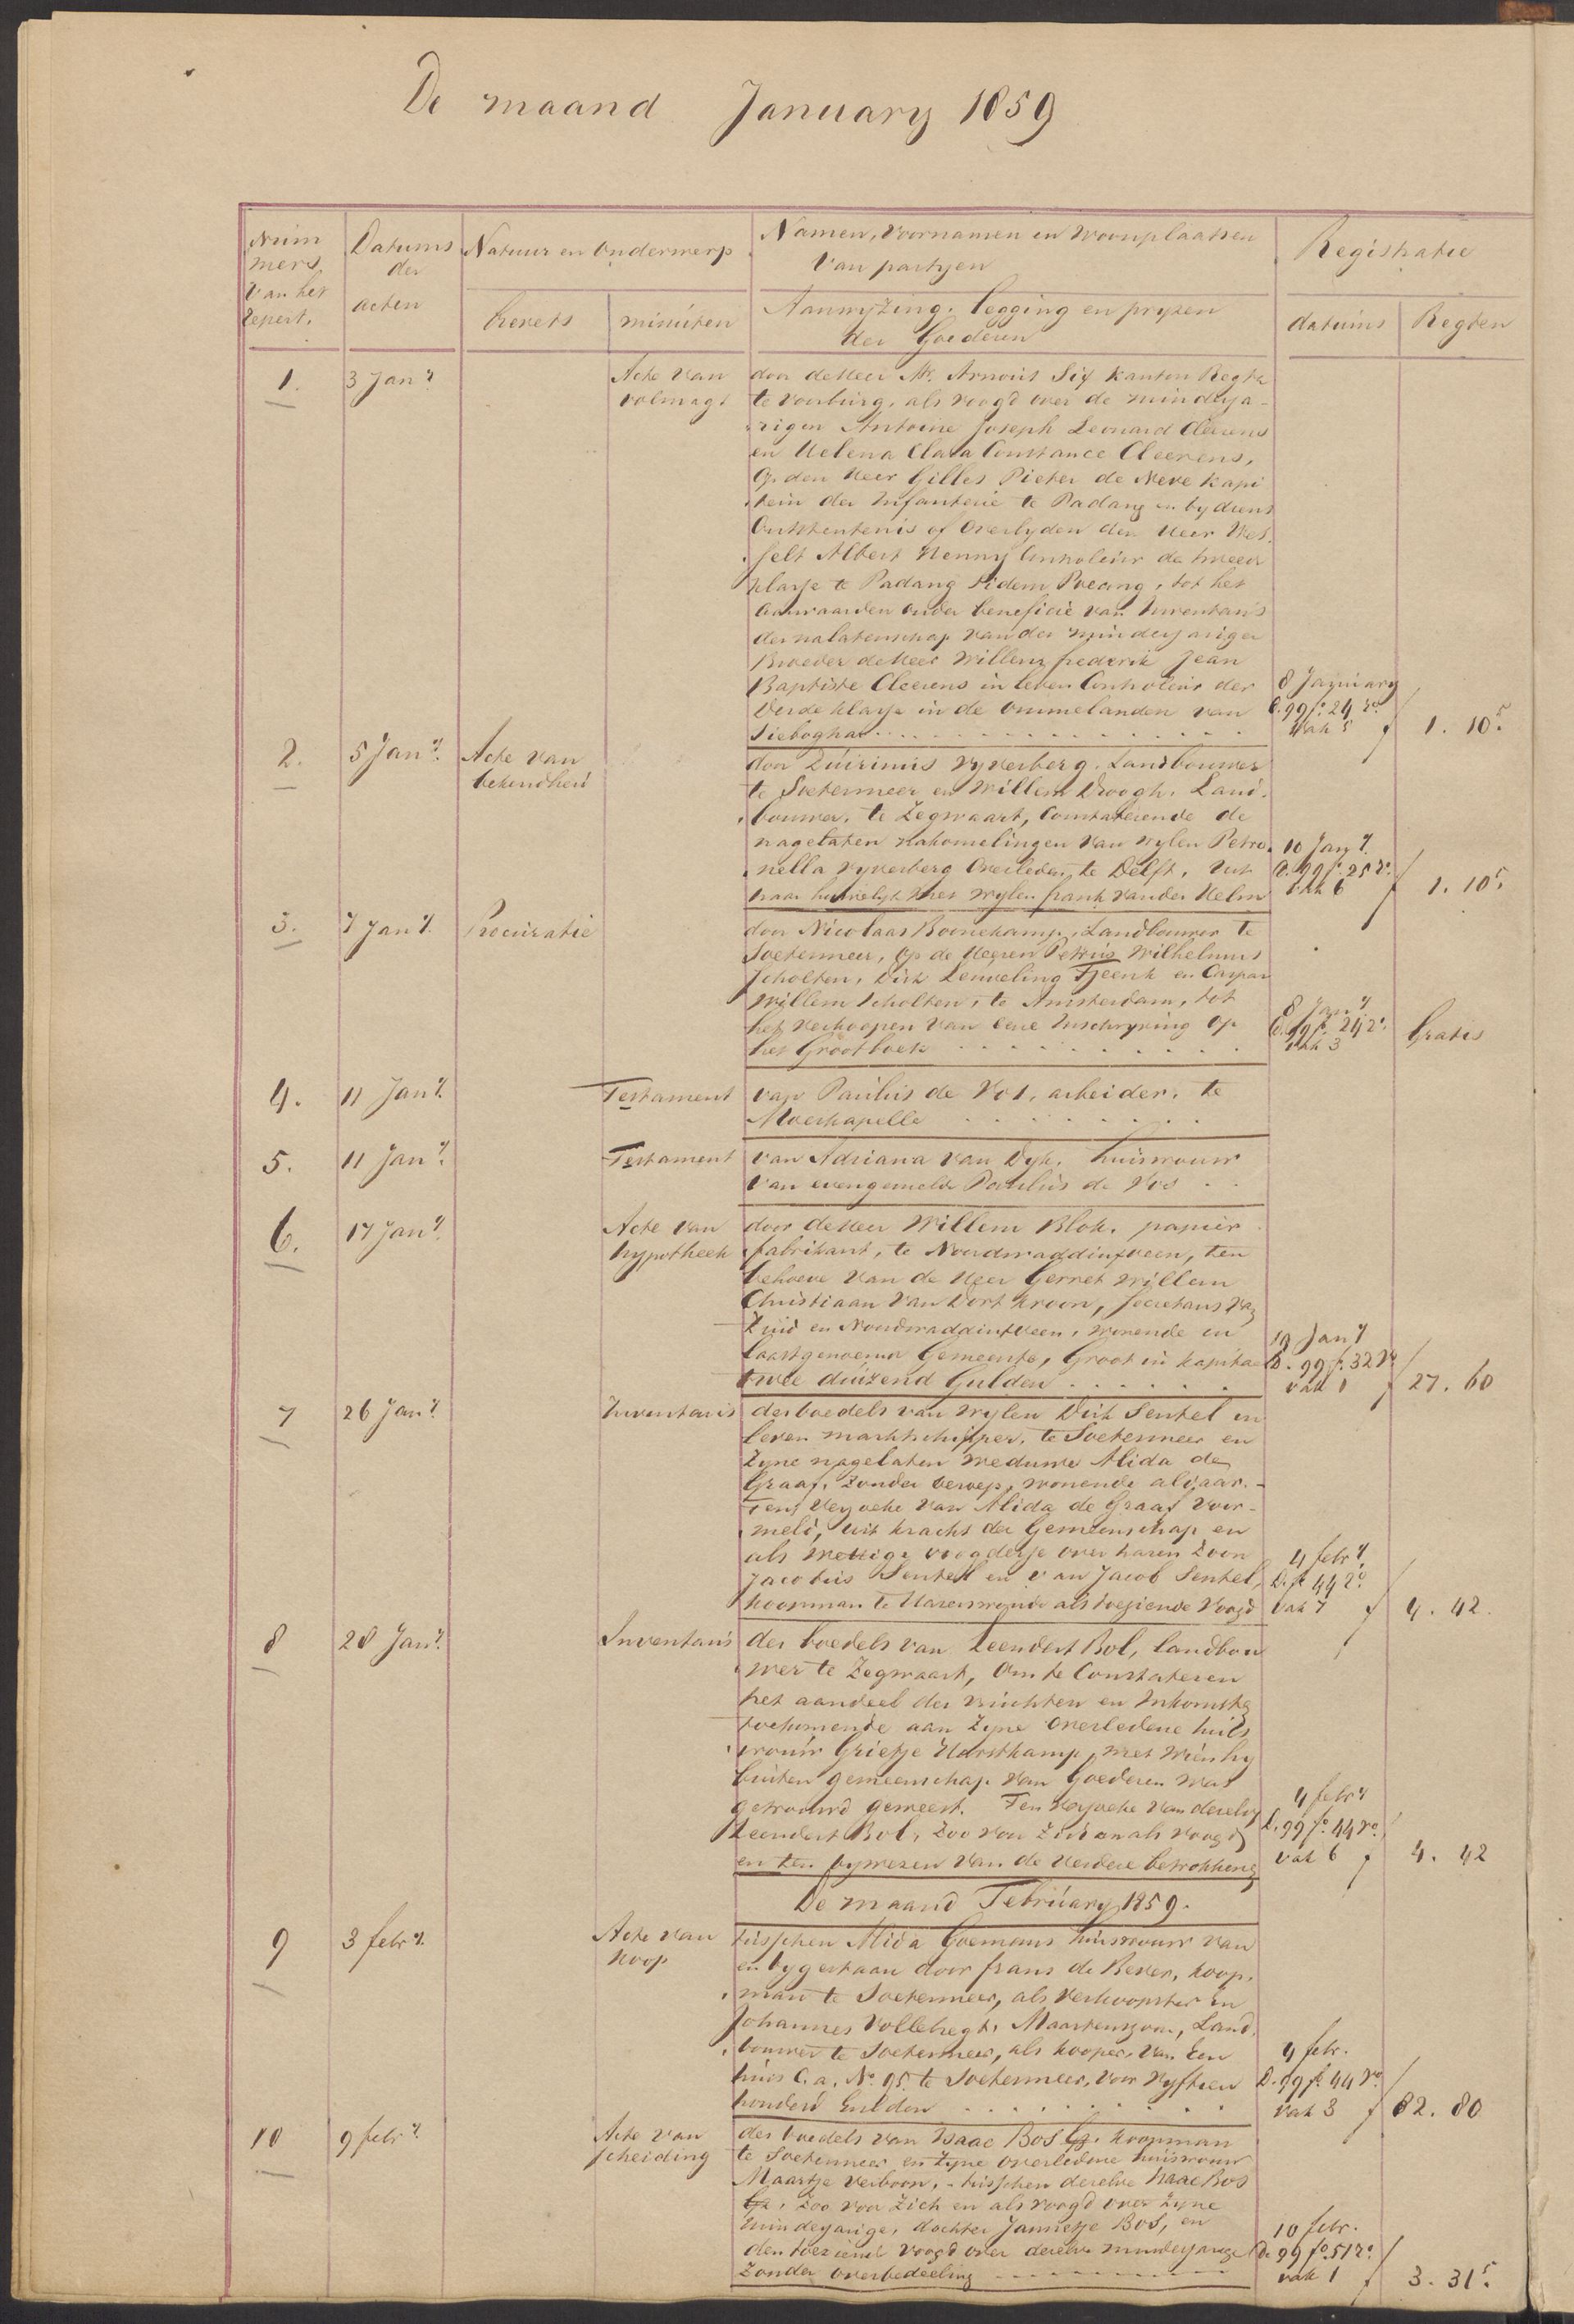 De maand January 1859
Num
mers
van het
repert.
Datums
der
acten
Natuur en Onderwerp
brevets
minuten
Namen, Voornamen en Woonplaatsen
van partyen
Aanwyzing, legging en pryzen
der Goederen
Registratie
datums
Regten
1. 3 Jany. Acte van
volmagt
door de Heer Mr. Arnout Six kanton Regter
te Voorburg, als voogd over de minderja-
rigen Antoine Joseph Leonard Cleerens
en Helena Clara Constance Cleerens,
Op den Heer Gilles Pieter de Neve kapi
tein der Infanterie te Padang en by diens
Ontstentenis of Overlyden den Heer Wes.
selt Albert Henny Controleur de tweede
klasse te Padang Sidem Poeang, tot het
aanvaarden onder beneficie van Inventaris
der nalatenschap van der minderjariger
Broeder de Heer Willem frederik Jean
Baptiste Cleerens in leven Controleur der
derde klasse in de Ommelanden van
Siebogha
8 January
D. 99 fo. 24 ro.
vak 5 f 1. 10⁵.
2. 5 Jany. Acte van
bekendheid
door Quirinus Vyverberg, Landbouwer
te Soetermeer en Willem Droogh, Land.
bouwer, te Zegwaart, Constaterende de
nagelaten nakomelingen van wylen Petro.
nella Vyverberg Overleden te Delft, uit
haar huwelyk met wylen frank van der Helm
10 Jany.
D. 99 fo. 25 ro.
vak 6 f 1. 10⁵.
3. 7 Jany. Procuratie
door Nicolaas Boonekamp, Landbouwer te
Soetermeer, Op de Heeren Petrus Wilhelmus
Scholten, Dirk Leuveling Tjeenk en Caspar
Willem Scholten, te Amsterdam, tot
het verkoopen van eene Inschryving op
het Grootboek
8 Jany.
D. 99 fo. 24 ro.
vak 3 Gratis
4. 11 Jany. Testament
van Paulus de Vos, arbeider, te
Moerkapelle
5. 11 Jany. Testament
van Adriana van Dyk, huisvrouw
van evengemelde Paulus de Vos
6. 17 Jany. Acte van
hypotheek
door de Heer Willem Blok, papier
fabrikant, te Noordwaddinxveen, ten
behoeve van de Heer Gerret Willem
Christiaan van Dort Kroon, Secretaris van
Zuid en Noordwaddinxveen, wonende in
laastgenoemde Gemeente, Groot in kapitaal
twee duizend Gulden
19 Jany
D. 99 fo. 32 vo
vak 1 f 27. 60
7 26 Jany. Inventaris
des boedels van wylen Dirk Sentel in
leven marktschipper, te Soetermeer en
Zyne nagelaten weduwe Alida de
Graaf, zonder beroep, wonende aldaar.-
Ten Verzoeke van Alida de Graaf voor-
meld, uit kracht der Gemeenschap en
als wettige voogdesse over haren Zoon
Jacobus Sentel en van Jacob Sentel,
koopman te Hazerswoude als toeziende voogd
4 febry.
D. fo 44 ro.
vak 7 f 4. 42.
8 28 Jany. Inventaris
des boedels van Leendert Bol, landbou
wer te Zegwaart, Om te Constateren
het aandeel der vruchten en Inkomsten
toekomende aan Zyne Overledene huis
vrouw Grietje Horstkamp, met wien hy
buiten gemeenschap van Goederen was
getrouwd geweest. Ten verzoeke van dezelve
Leendert Bol, zoo voor Zich en als voogd
en ten bywezen van de verdere betrokkene
4 febry
D. 99 fo. 44 ro.
vak 6 f 4. 42
De maand February 1859.
9 3 febry. Acte van
koop
tusschen Alida Goemans huisvrouw van
en bygestaan door frans de Bever, koop.
man te Soetermeer, als verkoopster en
Johannes Vollebregt, Maartenszoon, Land.
bouwer te Soetermeer, als kooper, van Een
huis C.a. No. 95. te Soetermeer, voor Vyftien
honderd Gulden
4 febr.
D. 99 fo. 44 vo.
vak 3 f 82. 80
10 9 febry. Acte van
scheiding
des boedels van Isaac Bos Gz. koopman
te Soetermeer en Zyne overledene huisvrouw
Maartje Verboon, - tusschen dezelve Isaac Bos
Gz, zoo voor Zich en als voogd over Zyne
minderjarige, dochter Jannetje Bos, en
den toeziend voogd over dezelve minderjarige
zonder overbedeeling
10 febr.
D. 99 fo. 51 ro.
vak 1 f 3. 31⁵.